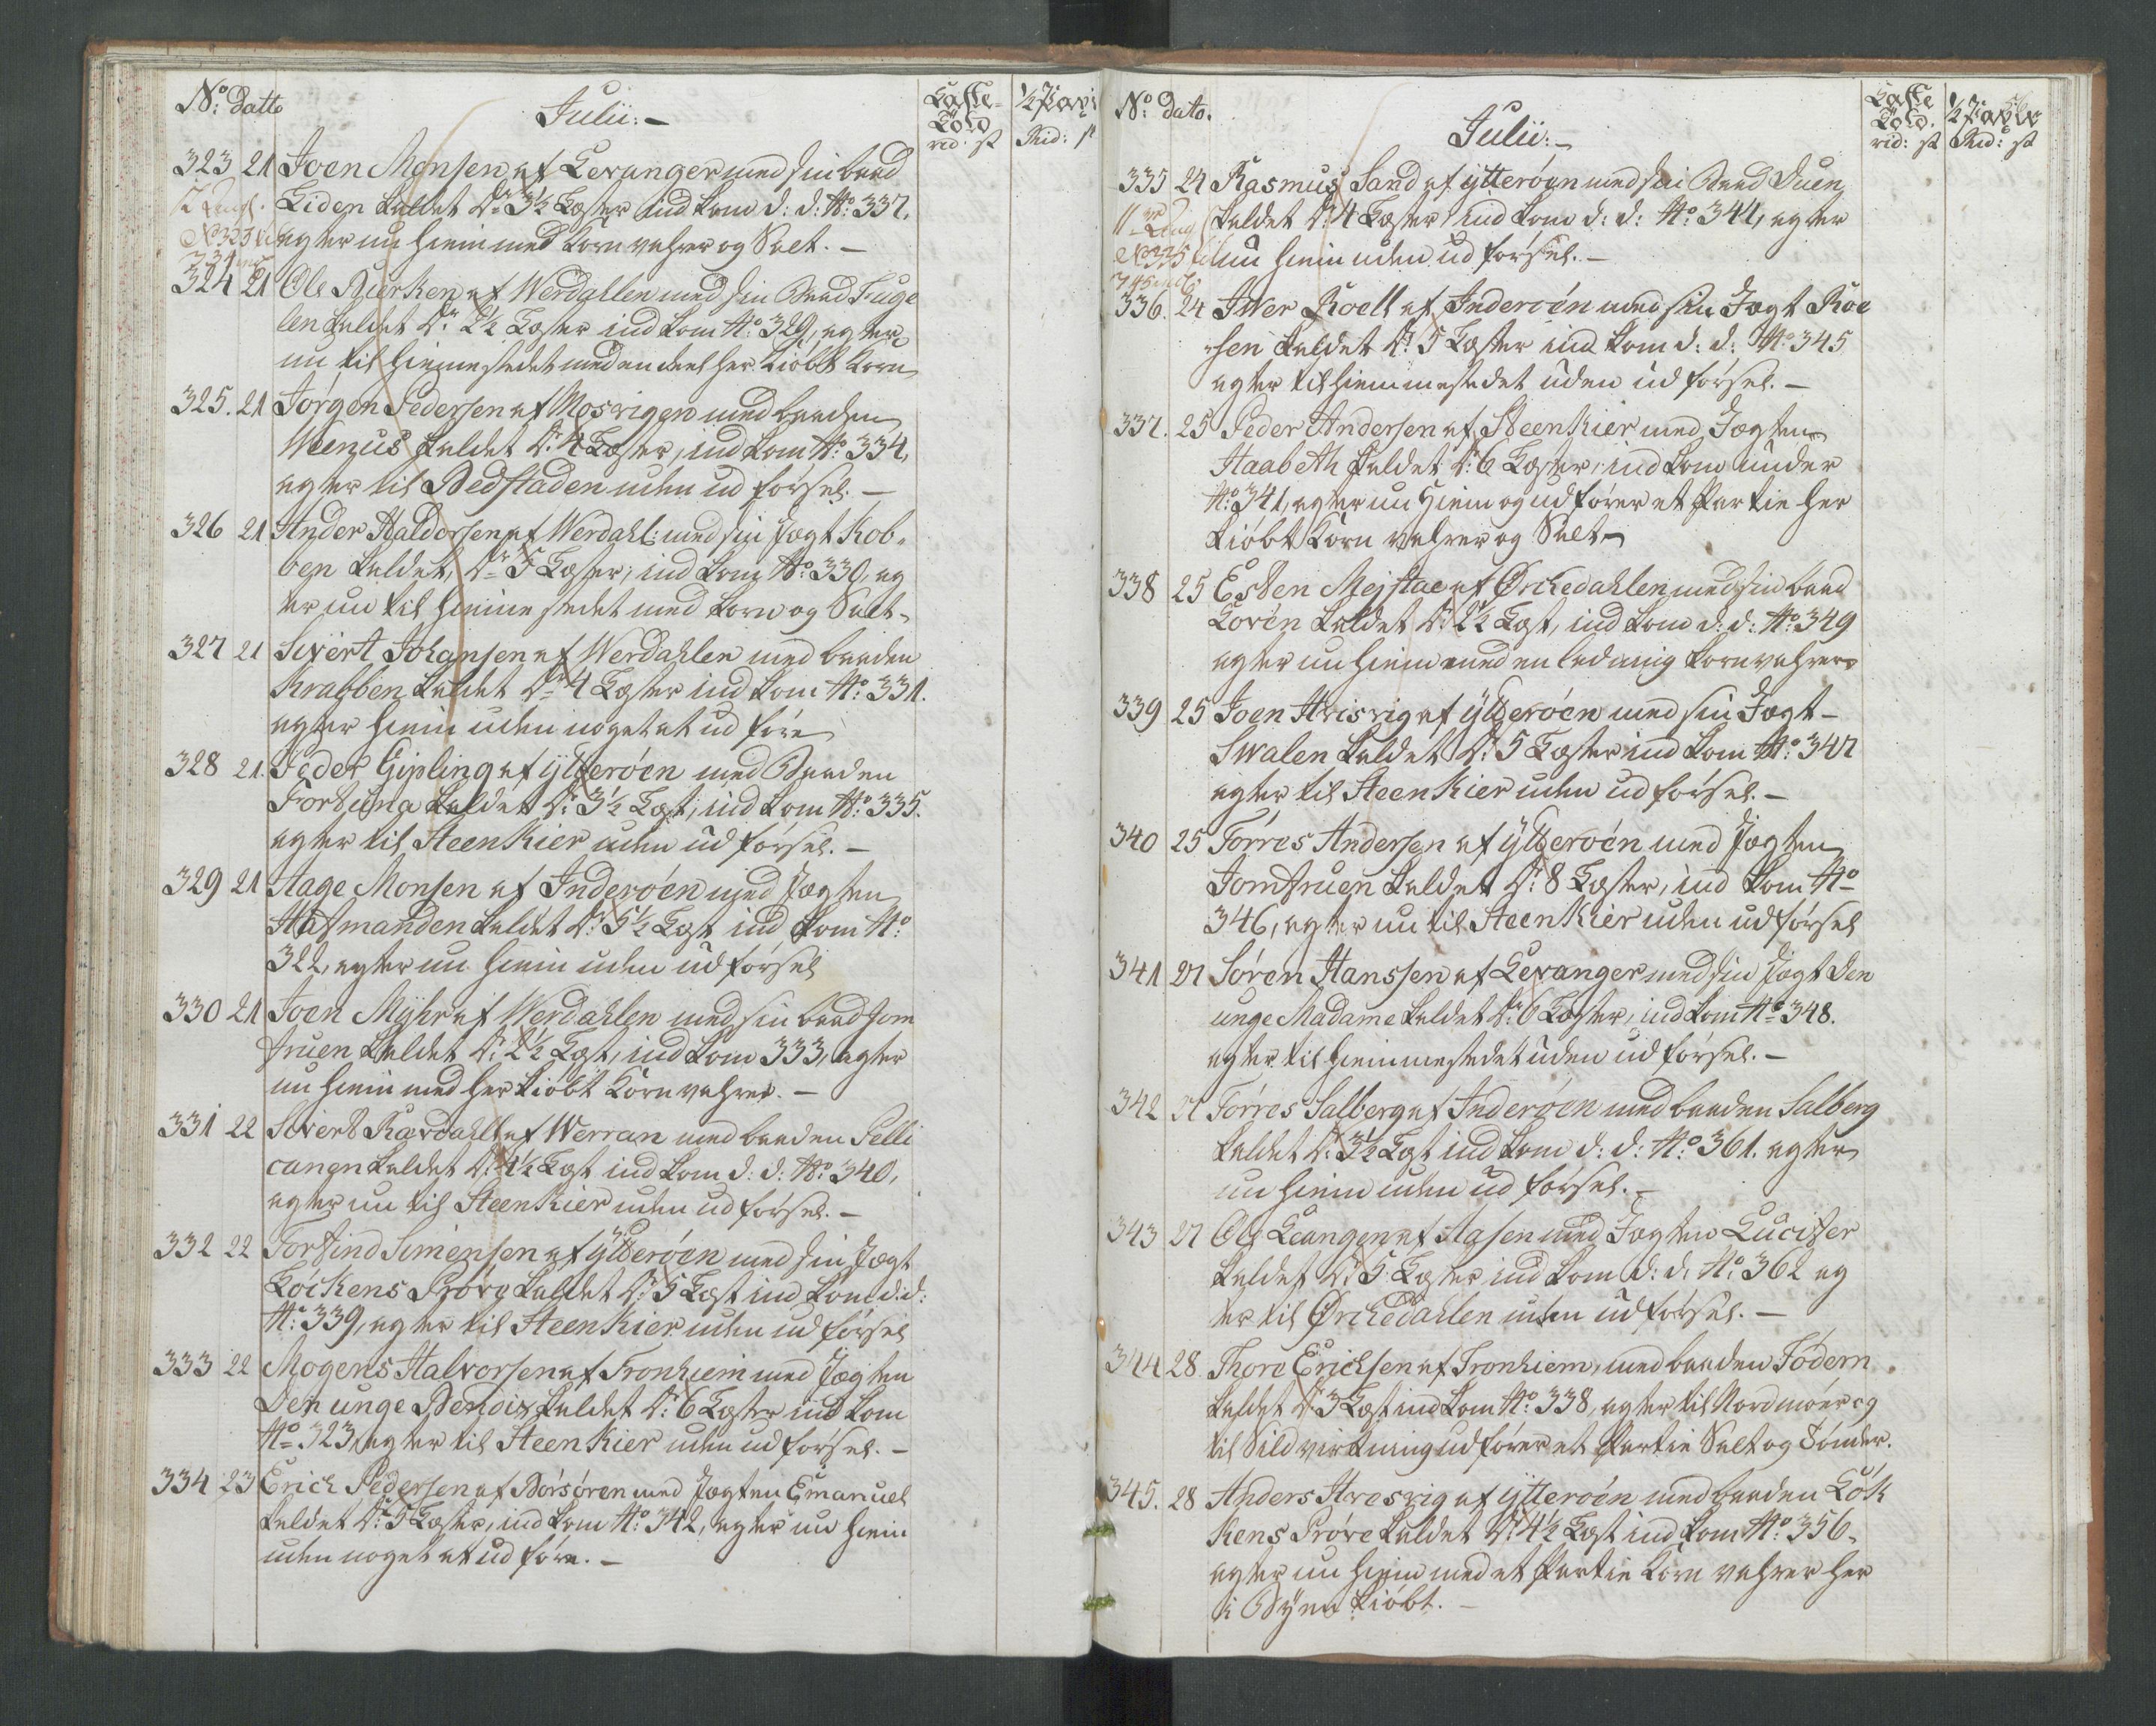 No: datto
Julii:
Læste-
Told
rid: s
1/2 Pavi
Rid: s
323 21 Joen Monsen af Levanger med sin baad
Liden kaldet dr: 3½ Læster ind kom d: d: No: 337,
agter nu hiem med korn vahrer og Salt. –
324 21 Ole Bierken af Werdahlen med sin Baad Fuge
len kaldet dr: 2½ Læster ind kom No: 329, agter
nu til hiemmestedet med en deel her kiøbt Korn
325. 21 Jørgen Pedersen af Mosvigen med baaden
Weenus kaldet dr: 4 Læster, ind kom No: 334,
agter til Bedstaden uden udførsel. –
326 21 Ander Haldorsen af Werdahl: med sin Jagt Kob-
ben kaldet, dr: 5 Læster, ind kom No: 330, ag
ter nu til hiemme stedet med korn og Salt-
327 21 Sivert Johansen af Werdahlen med baaden
Krabben kaldet dr: 4 Læster ind kom No: 331.
agter hiem uden noget at udføre
328 21. Peder Gipling af ytterøen med Baaden
Fortuna kaldet dr: 3½ Læst, ind kom No: 335.
agter til Steenkier uden udførsel. –
329 21 Aage Monsen af Inderøen med Jagten
Hafmanden kaldet dr: 5½ Læst ind kom No:
322, agter nu hiem uden udførsel
330 21 Joen Myhr af Werdahlen med sin baad Jom
fruen kaldet dr: 2½ Læst, ind kom 333, agter
nu hiem med her kiøbt Korn vahrer. –
331 22 Sivert Kardahl af Werran med baaden Pelli
canen kaldet dr: 4½ Læst ind kom d: d: No: 340,
agter nu til Steenkier uden udførsel. –
332 22 Torfind Simensen af ytterøen med sin Jagt
Løckens Prøve kaldet dr: 5 Læst ind kom d: d:
No: 339, agter til Steenkier uden udførsel
333 22 Mogens Halvorsen af Tronhiem med Jagten
Den unge Bendix kaldet dr: 6 Læster ind kom
No: 323, agter til Steenkier uden udførsel. –
334 23 Erich Pedersen af Børsøren med Jagten Emanuel
kaldet dr: 5 Læster, ind kom No: 342, agter nu hiem
uden noget at udføre. –
No: dato.
Julii:
Læste
Told.
rid: s
Rid: s
335 24 Rasmus Sand af ytterøen med sin Baad Duen
kaldet dr: 4 Læster ind kom d: d: No: 344, agter
nu hiem uden udførsel. –
336. 24 Iwer Roell af Inderøen med sin Jagt Roe
sen kaldet dr: 5 Læster ind kom d: d: No: 345
agter til hiemmestedet uden udførsel. –
337. 25 Peder Andersen af Steenkier med Jagten
Haabeth kaldet dr: 6 Læster, ind kom under
No: 341, agter nu hiem og udfører et Partie her
kiøbt Korn vahrer og Salt
338 25 Esten Mejstae af Ørckedahlen med sin baad
Loven kaldet dr: 2½ Læst, ind kom d: d: No: 349
agter nu hiem med en ladning kornvahrer
339 25 Joen Hrisvig af ytterøen med sin Jagt
Swalen kaldet dr: 5 Læster ind kom No: 347
agter til Steenkier uden udførsel. –
340 25 Torres Andersen af ytterøen med Jagten
Jomfruen kaldet dr: 8 Læster, ind kom No
346, agter nu til Steenkier uden udførsel
341 27 Søren Hanssen af Levanger med sin Jagt den
unge Madame kaldet dr: 6 Læster, ind kom No: 348.
agter til hiemmestedet uden udførsel. –
342 27 Torres Salberg af Inderøen med baaden Salberg
kaldet dr: 3½ Læst ind kom d: d: No: 361. agter
nu hiem uden udførsel. –
343 27 Ole Leangen af Aasen med Jagten Lucifer
kaldet dr: 5 Læster ind kom d: d: No: 362 ag
ter til Ørckedahlen uden udførsel. –
344 28 Thore Erichsen af Tronhiem, med baaden Fødern
kaldet dr: 3 Læst ind kom No: 338, agter til Nordmøer og
til Sild virkning udfører et Partie Salt og Tønder.
345. 28 Anders Hresvig af ytterøen med baaden Løk
kens Prøve kaldet dr: 4½ Læst ind kom No: 356.
agter nu hiem med et Partie Korn vahrer her
i Byen kiøbt. –